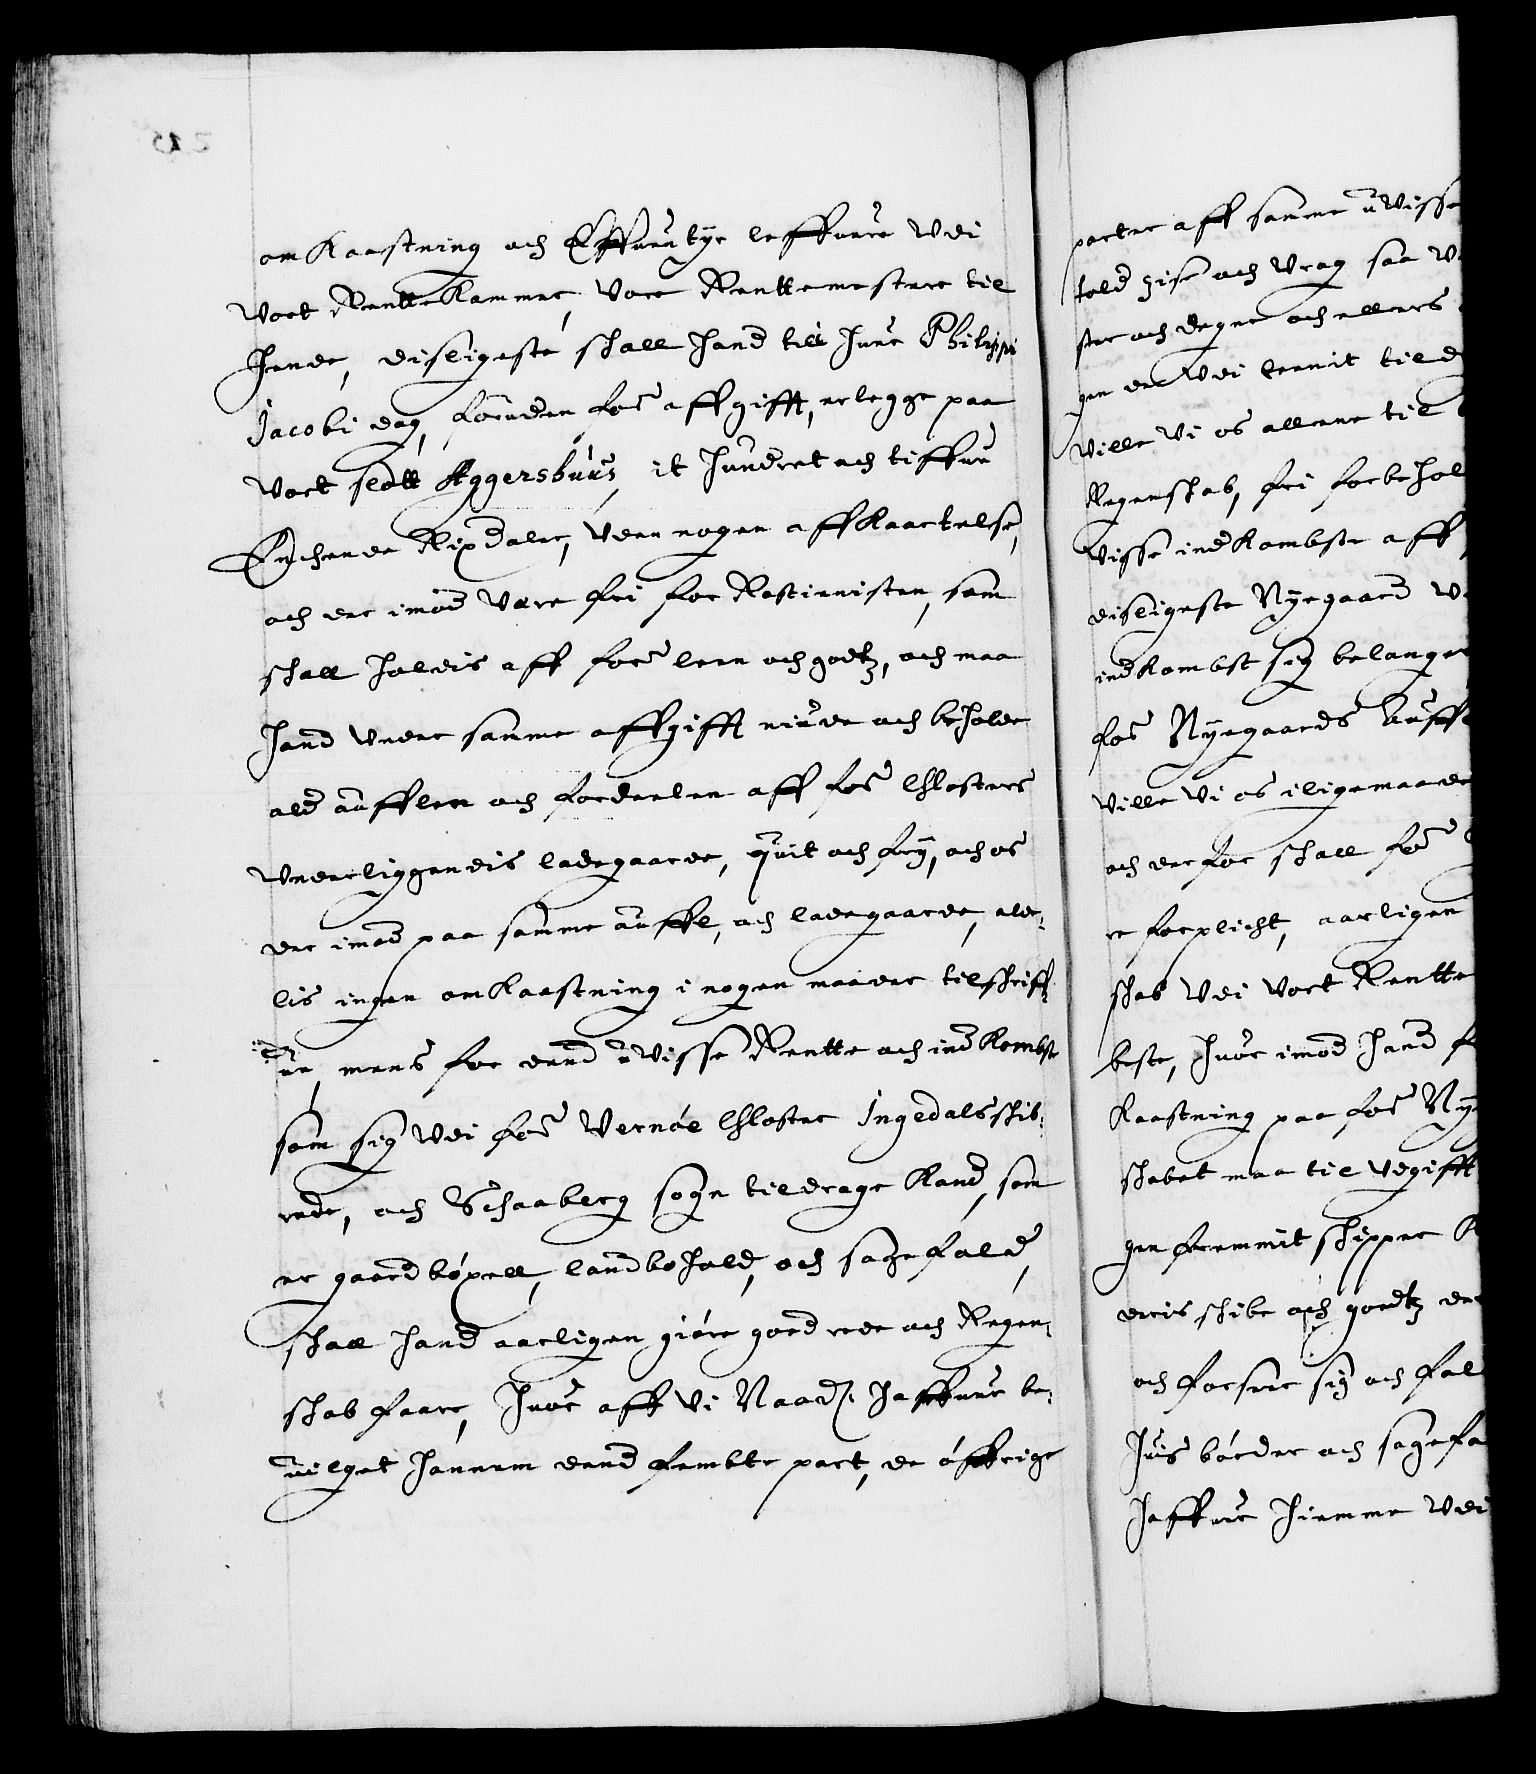 omkaastning och Effuentyr leffuere Vdi
Vort Rentte Kammer, Vore Renttemestere til
Hende, disligeste shall hand till huer Philippi
Jacobi dag, foruden for affgifft, erlegge paa
Vort slott Aggershuus, it hundret och tiffue
Enchende Rixdaler, Vden nogen affkaartelse,
och der imod Vere fri for Rostienisten, som
shall holdis aff for leen och godtz, och maa
hand Vnder samme affgifft niude och beholde
ald aufflen och fordeelen aff for Closters
Vnderliggendis ladegaarde, quit och frÿ, och os
der imod paa samme auffl, och ladegaarde, alde-
lis ingen omkaastning i nogen maader tilshriff-
ue, mens for dend uVisse Rentte och indkombst
som sig Vdi for Vernóe Closter Ingedals shib-
rede, och Schaaberg sogn tildrage kand, som
er gaardbóxell, landbohold, och sagefald,
shall hand aarligen gióre goed rede och Regen-
shab faare, huor aff Vi Naadst haffuer be-
uilget hannem dend fembte part, de óffrige
parter aff samme uVisse
told zise och Vrag saa
ster och degne och ellers
gen der Vdi leenit tild
Ville Vi os allene til
Regenshab, fri forbehol
Visse indkombste aff
disligeste Nyegaard
indkombst sig belanger
for Nyegaards auff
Ville Vi os iligemaade
och der for shall for
re forplicht, aarligen
shab Vdi Vort Rentte
beste, huor imod hand f
kaastning paa for Ny
shabet maa til Vdgifft
gen fremmit shipper
deris shibe och goedtz
och forsee sig och fal
huis bóeder och sagefa
haffuer hiemme Vdi